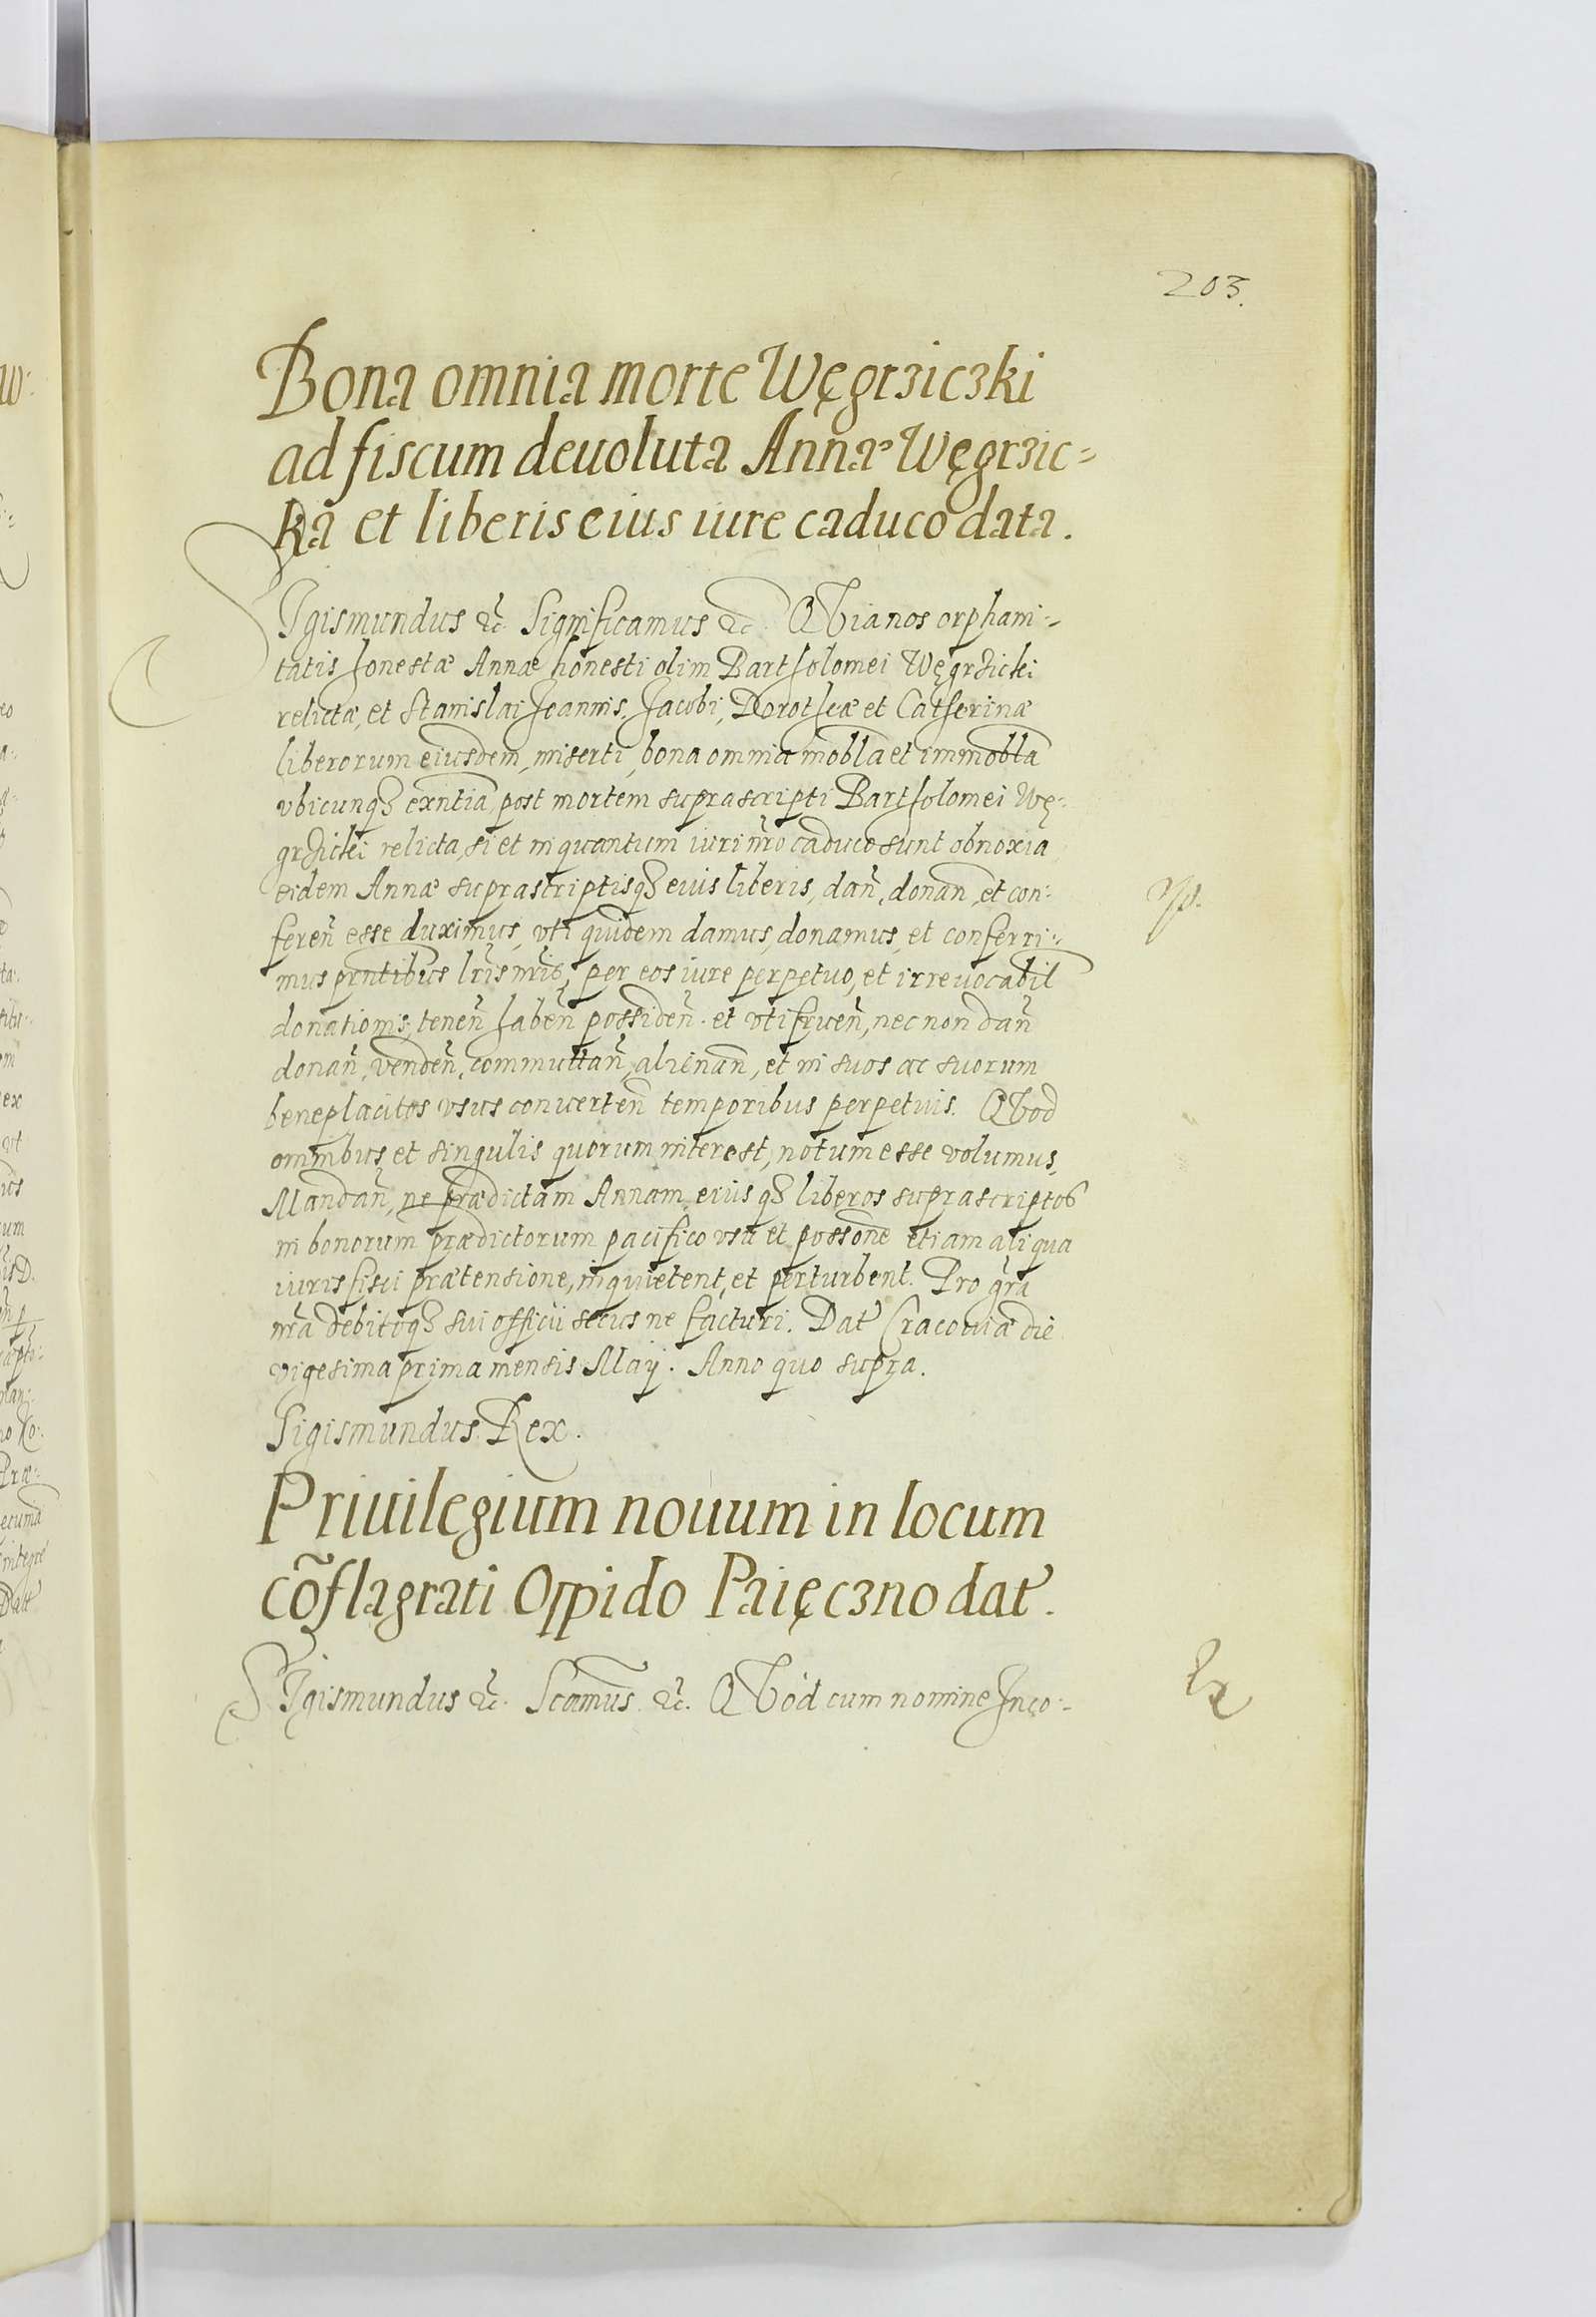 203.
Bona omnia morte Węgrziczki
ad fiscum deuoluta Annæ Węgrzic=
kã et liberis eius iure caduco data.
SIgismundus &c. Significamus &c. QVia nos orphani=
tatis honestæ Annæ honesti olim Bartholomei Węgrzicki
relictæ, et Stanislai Joannis, Jacobi, Dorotheæ et Catherinæ
liberorum eiusdem, miserti, bona omnia mobla et immobla
vbicunqȝ exntia, post mortem suprascripti Bartholomei Wę=
grzicki relicta, si et in quantum iuri nro caduco sunt obnoxia,
eidem Annæ suprascriptisqȝ eius liberis, dan̄, donan̄, et con=
feren̄ esse duximus, vti quidem damus, donamus, et conferri=
mus prntibus lris nris, per eos iure perpetuo, et irreuocabil
donationis, tenen̄ haben̄ possiden̄. et vtifruen̄, nec non dan̄
donan̄, venden̄, commuttan̄, alienan̄, et in suos ac suorum
beneplacitos vsus conuerten̄ temporibus perpetuis. QVod
omnibus et singulis quorum interest, notum esse volumus,
Mandan̄, ne prædictam Annam, eiusqȝ liberos suprascriptos
in bonorum prædictorum pacifico vsu et possone etiam aliqua
iuris fisci prætensione, inquietent, et perturbent. Pro gra
nra debitoqȝ sui officii secus ne facturi. Dat Cracouiæ die
vigesima prima mensis Maij. Anno quo supra.
Sigismundus Rex.
Priuilegium nouum in locum
cõflagrati Oppido Paięczno dat.
SIgismundus &c. Scamus &c. QVod cum nomine Inco=